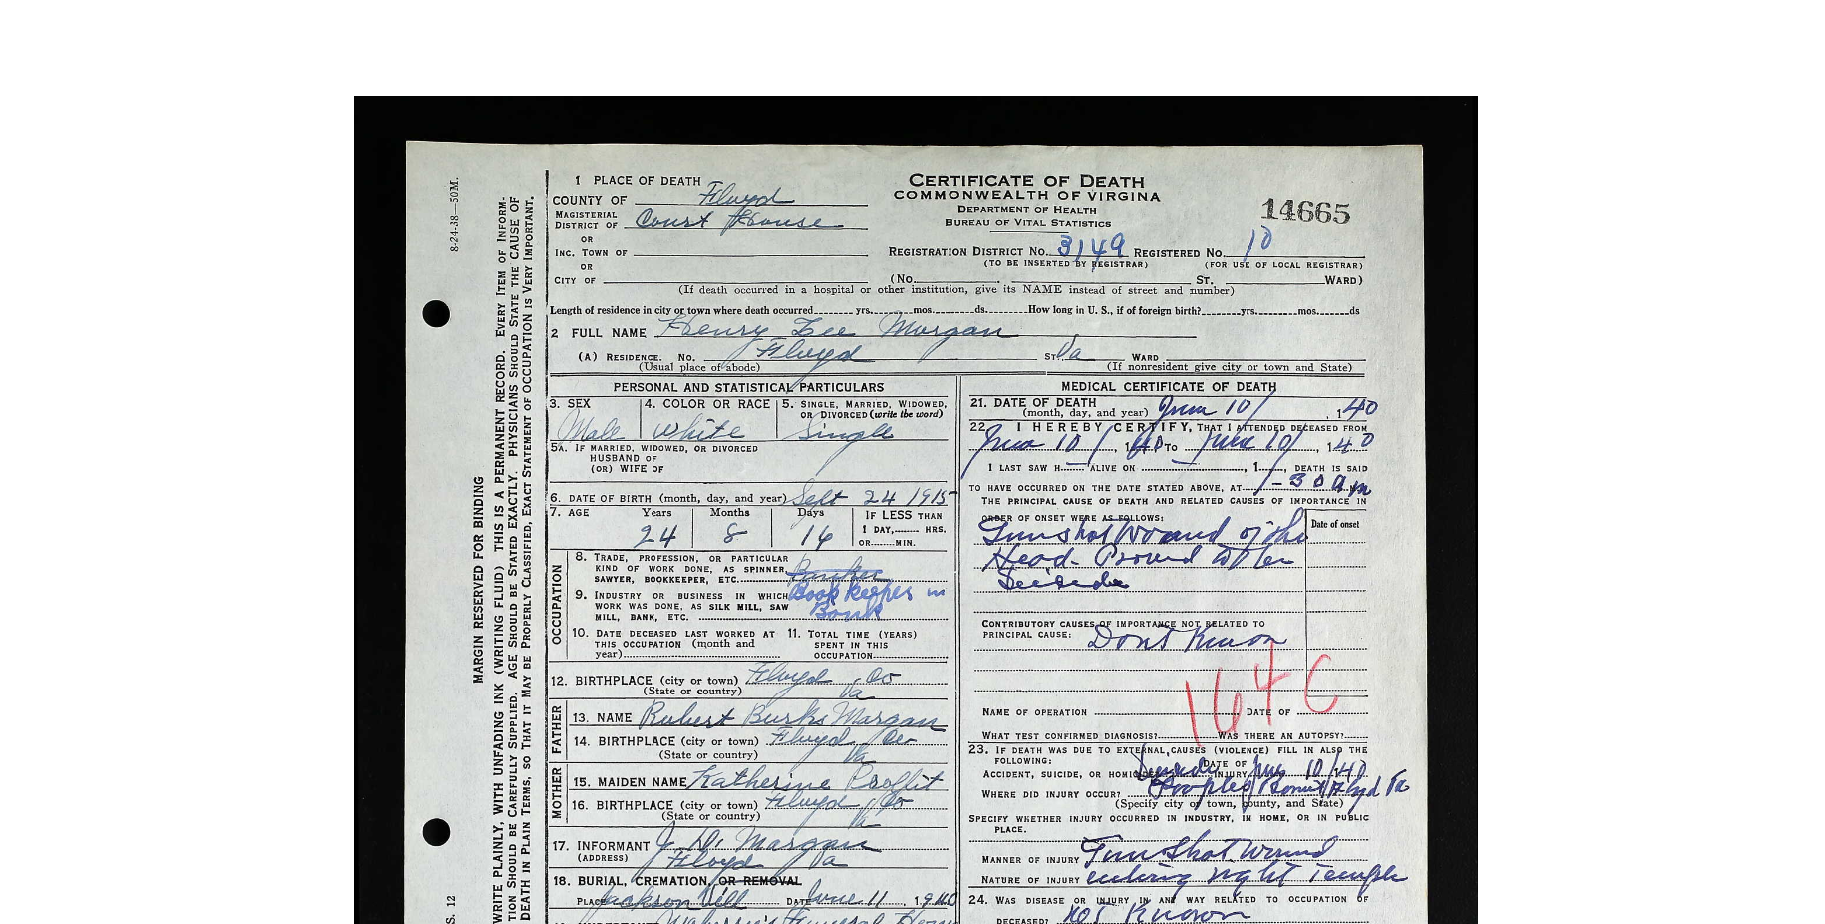 8-24-38—50M.
MARGIN RESERVED FOR BINDING
WRITE PLAINLY, WITH UNFADING INK (WRITING FLUID) THIS IS A PERMANENT RECORD. EVERY ITEM OF INFORM-
TION SHOULD BE CAREFULLY SUPPLIED. AGE SHOULD BE STATED EXACTLY. PHYSICIANS SHOULD STATE THE CAUSE OF
DEATH IN PLAIN TERMS, SO THAT IT MAY BE PROPERLY CLASSIFIED, EXACT STATEMENT OF OCCUPATION IS VERY IMPORTANT.
S. 12
1 PLACE OF DEATH
COUNTY OF Floyd
MAGISTERIAL DISTRICT OF Court House
OR
INC. TOWN OF
OR
CITY OF
CERTIFICATE OF DEATH
COMMONWEALTH OF VIRGINIA
DEPARTMENT OF HEALTH
BUREAU OF VITAL STATISTICS
14665
REGISTRATION DISTRICT No. 3149 REGISTERED No. 10
(TO BE INSERTED BY REGISTRAR) (FOR USE OF LOCAL REGISTRAR)
(No. ST. WARD)
(If death occurred in a hospital or other institution, give its NAME instead of street and number)
Length of residence in city or town where death occurred yrs. mos. ds. How long in U. S., if of foreign birth? yrs. mos. ds
2 FULL NAME Henry Lee Morgan
(A) RESIDENCE. No. Floyd ST. Va WARD
(Usual place of abode) (If nonresident give city or town and State)
PERSONAL AND STATISTICAL PARTICULARS
3. SEX 4. COLOR OR RACE 5. SINGLE, MARRIED, WIDOWED,
OR DIVORCED (write the word)
Male White Single
5A. IF MARRIED, WIDOWED, OR DIVORCED
HUSBAND OF
(OR) WIFE OF
6. DATE OF BIRTH (month, day, and year) Sept 24 1915
7. AGE Years Months Days IF LESS THAN
1 DAY, HRS.
OR MIN.
24 8 16
OCCUPATION
8. TRADE, PROFESSION, OR PARTICULAR
KIND OF WORK DONE, AS SPINNER,
SAWYER, BOOKKEEPER, ETC. Banker
9. INDUSTRY OR BUSINESS IN WHICH Book keeper in
WORK WAS DONE, AS SILK MILL, SAW Bank
MILL, BANK, ETC.
10. DATE DECEASED LAST WORKED AT 11. TOTAL TIME (YEARS)
THIS OCCUPATION (month and SPENT IN THIS
year) OCCUPATION
12. BIRTHPLACE (city or town) Floyd Co
(State or country) Va
FATHER
13. NAME Robert Burks Morgan
14. BIRTHPLACE (city or town) Floyd Co
(State or country) Va
MOTHER
15. MAIDEN NAME Katherine Proffit
16. BIRTHPLACE (city or town) Floyd Co
(State or country) Va
17. INFORMANT Morgan
(ADDRESS) Floyd Va
18. BURIAL, CREMATION, OR REMOVAL
PLACE Jacksonvill DATE June 11, 1940
Funeral Home
MEDICAL CERTIFICATE OF DEATH
21. DATE OF DEATH
(month, day, and year) June 10/, 140
22. I HEREBY CERTIFY, THAT I ATTENDED DECEASED FROM
June 10/, 140 TO June 10/, 140
I LAST SAW H ALIVE ON , 1 , DEATH IS SAID
TO HAVE OCCURRED ON THE DATE STATED ABOVE, AT 1-30 am
THE PRINCIPAL CAUSE OF DEATH AND RELATED CAUSES OF IMPORTANCE IN
ORDER OF ONSET WERE AS FOLLOWS: Date of onset
Gunshot Wound of the
Head-
Suicide
CONTRIBUTORY CAUSES OF IMPORTANCE NOT RELATED TO
PRINCIPAL CAUSE: Dont Know
164 C
NAME OF OPERATION DATE OF
WHAT TEST CONFIRMED DIAGNOSIS? WAS THERE AN AUTOPSY?
23. IF DEATH WAS DUE TO EXTERNAL CAUSES (VIOLENCE) FILL IN ALSO THE
FOLLOWING: DATE OF
ACCIDENT, SUICIDE, OR HOMICIDE Suicide INJURY June 10/140
WHERE DID INJURY OCCUR? Peoples Bank Floyd Va
(Specify city or town, county, and State)
SPECIFY WHETHER INJURY OCCURRED IN INDUSTRY, IN HOME, OR IN PUBLIC
PLACE.
MANNER OF INJURY Gun Shot Wound
NATURE OF INJURY entering right Temple
24. WAS DISEASE OR INJURY IN ANY WAY RELATED TO OCCUPATION OF
DECEASED? not Known